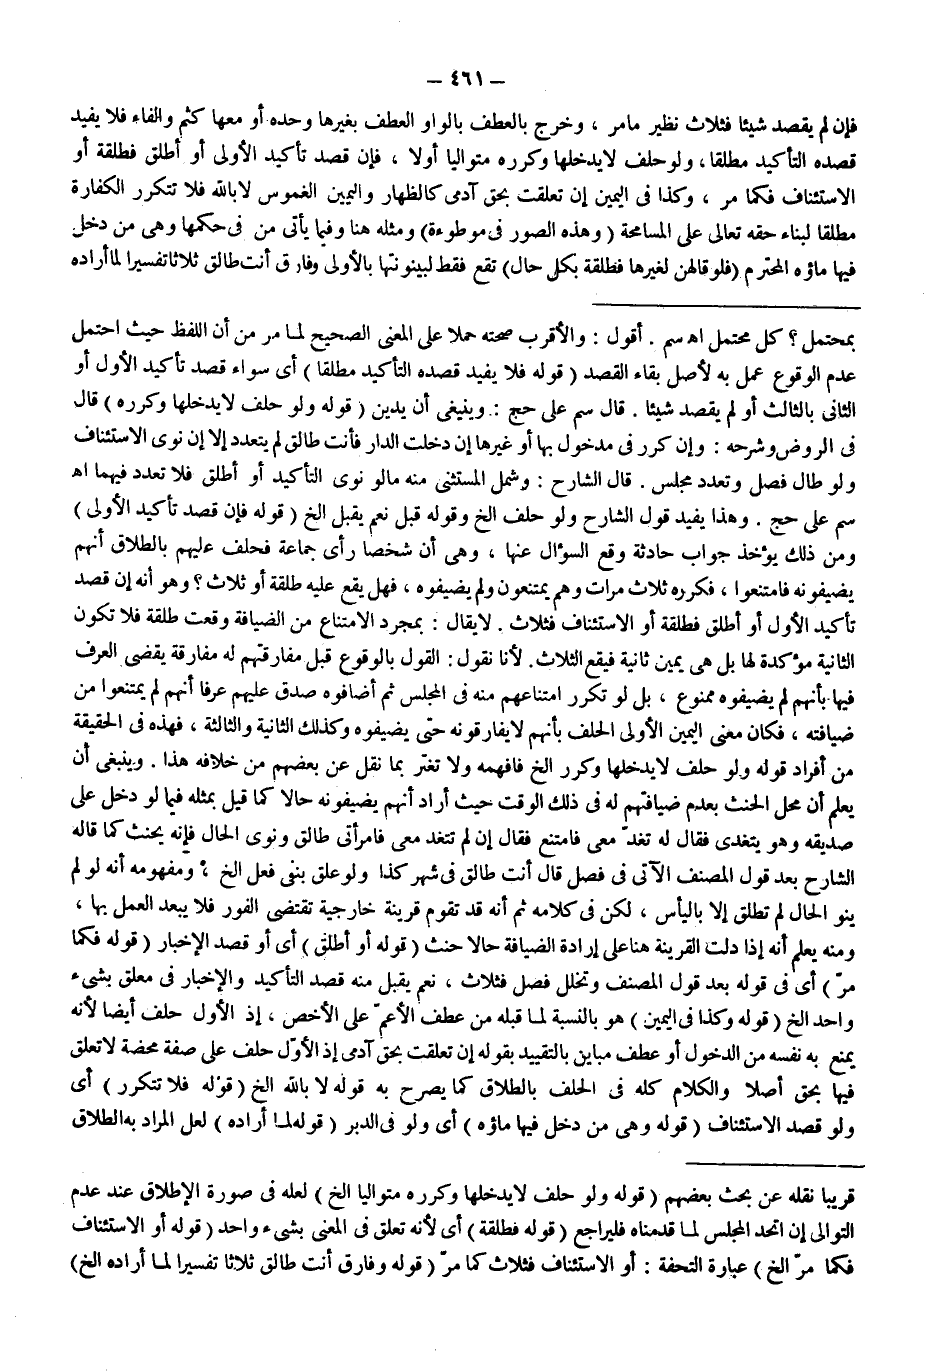 – ٤٦١ –
فإن لم يقصد شيئا فثلاث نظير مامر ، وخرج بالعطف بالواو العطف بغيرها وحده أو معها كثم والفاء فلا يفيد
قصده التأكيد مطلقا ، ولوحلف لايدخلها وكرره متواليا أولا ، فإن قصد تأكيد الأولى أو أطلق فطلقة أو
الاستئناف فكما مر ، وكذا فى اليمين إن تعلقت بحق آدمى كالظهار واليمين الغموس لابالله فلا تتكرر الكفارة
مطلقا لبناء حقه تعالى على المسامحة ( وهذه الصور فى موطوءة) ومثله هنا وفيما يأتى من فى حكمها وهى من دخل
فيها ماؤه المحترم (فلوقالهن لغيرها فطلقة بكل حال) تقع فقط لبينونتها بالأولى وفارق أنت طالق ثلاثا تفسيرا لما أراده
بمحتمل ؟ كل محتمل اه سم . أقول : والأقرب صحته حملا على المعنى الصحيح لما مر من أن اللفظ حيث احتمل
عدم الوقوع عمل به لأصل بقاء القصد ( قوله فلا يفيد قصده التأكيد مطلقا ) أى سواء قصد تأكيد الأول أو
الثانى بالثالث أو لم يقصد شيئا . قال سم على حج : وينبغى أن يدين ( قوله ولو حلف لايدخلها وكرره ) قال
فى الروض وشرحه : وإن كرر فى مدخول بها أو غيرها إن دخلت الدار فأنت طالق لم يتعدد إلا إن نوى الاستئناف
ولو طال فصل وتعدد مجلس . قال الشارح : وشمل المستثنى منه مالو نوى التأكيد أو أطلق فلا تعدد فيهما اه
سم على حج . وهذا يفيد قول الشارح ولو حلف الخ وقوله قبل نعم يقبل الخ ( قوله فإن قصد تأكيد الأولى )
ومن ذلك يؤخذ جواب حادثة وقع السؤال عنها ، وهى أن شخصا رأى جماعة فحلف عليهم بالطلاق أنهم
يضيفونه فامتنعوا ، فكرره ثلاث مرات وهم يمتنعون ولم يضيفوه ، فهل يقع عليه طلقة أو ثلاث ؟ وهو أنه إن قصد
تأكيد الأول أو أطلق فطلقة أو الاستئناف فثلاث . لايقال : بمجرد الامتناع من الضيافة وقعت طلقة فلا تكون
الثانية مؤكدة لها بل هى يمين ثانية فيقع الثلاث. لأنا نقول: القول بالوقوع قبل مفارقتهم له مفارقة يقضى العرف
فيها بأنهم لم يضيفوه ممنوع ، بل لو تكرر امتناعهم منه فى المجلس ثم أضافوه صدق عليهم عرفا أنهم لم يمتنعوا من
ضيافته ، فكان معنى اليمين الأولى الحلف بأنهم لايفارقونه حتى يضيفوه وكذلك الثانية والثالثة ، فهذه فى الحقيقة
من أفراد قوله ولو حلف لايدخلها وكرر الخ فافهمه ولا تغتر بما نقل عن بعضهم من خلافه هذا . وينبغى أن
يعلم أن محل الحنث بعدم ضيافتهم له فى ذلك الوقت حيث أراد أنهم يضيفونه حالا كما قيل بمثله فيما لو دخل على
صديقه وهو يتغدى فقال له تغدّ معى فامتنع فقال إن لم تتغد معى فامرأتى طالق ونوى الحال فإنه يحنث كما قاله
الشارح بعد قول المصنف الآتى فى فصل قال أنت طالق فى شهر كذا ولوعلق بنفى فعل الخ ، ومفهومه أنه لو لم
ينو الحال لم تطلق إلا باليأس ، لكن فى كلامه ثم أنه قد تقوم قرينة خارجية تقتضى الفور فلا يبعد العمل بها ،
ومنه يعلم أنه إذا دلت القرينة هنا على إرادة الضيافة حالا حنث ( قوله أو أطلق ) أى أو قصد الإخبار ( قوله فكما
مرّ ) أى فى قوله بعد قول المصنف وتخلل فصل فثلاث ، نعم يقبل منه قصد التأكيد والإخبار فى معلق بشىء
واحد الخ ( قوله وكذا فى اليمين ) هو بالنسبة لما قبله من عطف الأعمّ على الأخص ، إذ الأول حلف أيضا لأنه
يمنع به نفسه من الدخول أو عطف مباين بالتقييد بقوله إن تعلقت بحق آدمى إذ الأوّل حلف على صفة محضة لاتعلق
فيها بحق أصلا والكلام كله فى الحلف بالطلاق كما يصرح به قوله لا بالله الخ ( قوله فلا تتكرر ) أى
ولو قصد الاستئناف ( قوله وهى من دخل فيها ماؤه ) أى ولو فى الدبر ( قوله لما أراده ) لعل المراد به الطلاق
قريبا نقله عن بحث بعضهم ( قوله ولو حلف لايدخلها وكرره متواليا الخ ) لعله فى صورة الإطلاق عند عدم
التوالى إن اتحد المجلس لما قدمناه فليراجع ( قوله فطلقة ) أى لأنه تعلق فى المعنى بشىء واحد ( قوله أو الاستئناف
فكما مرّ الخ ) عبارة التحفة : أو الاستئناف فثلاث كما مرّ ( قوله وفارق أنت طالق ثلاثا تفسيرا لما أراده الخ)